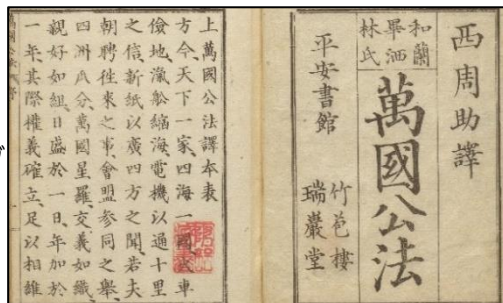 西周助譯
和蘭
畢洒
林氏
萬國公法
平安書館
竹苞樓
瑞巖堂
上萬國公法譯本表
方今天下一家四海一國
儉地瀛舩縮海電機以通十里
之信新紙以廣四方之聞若夫
朝聘徃來之事會盟参同之舉
四洲瓜分萬國星羅交義如織
親好如組日盛於一日年加於
一年其際權義確立足以相維